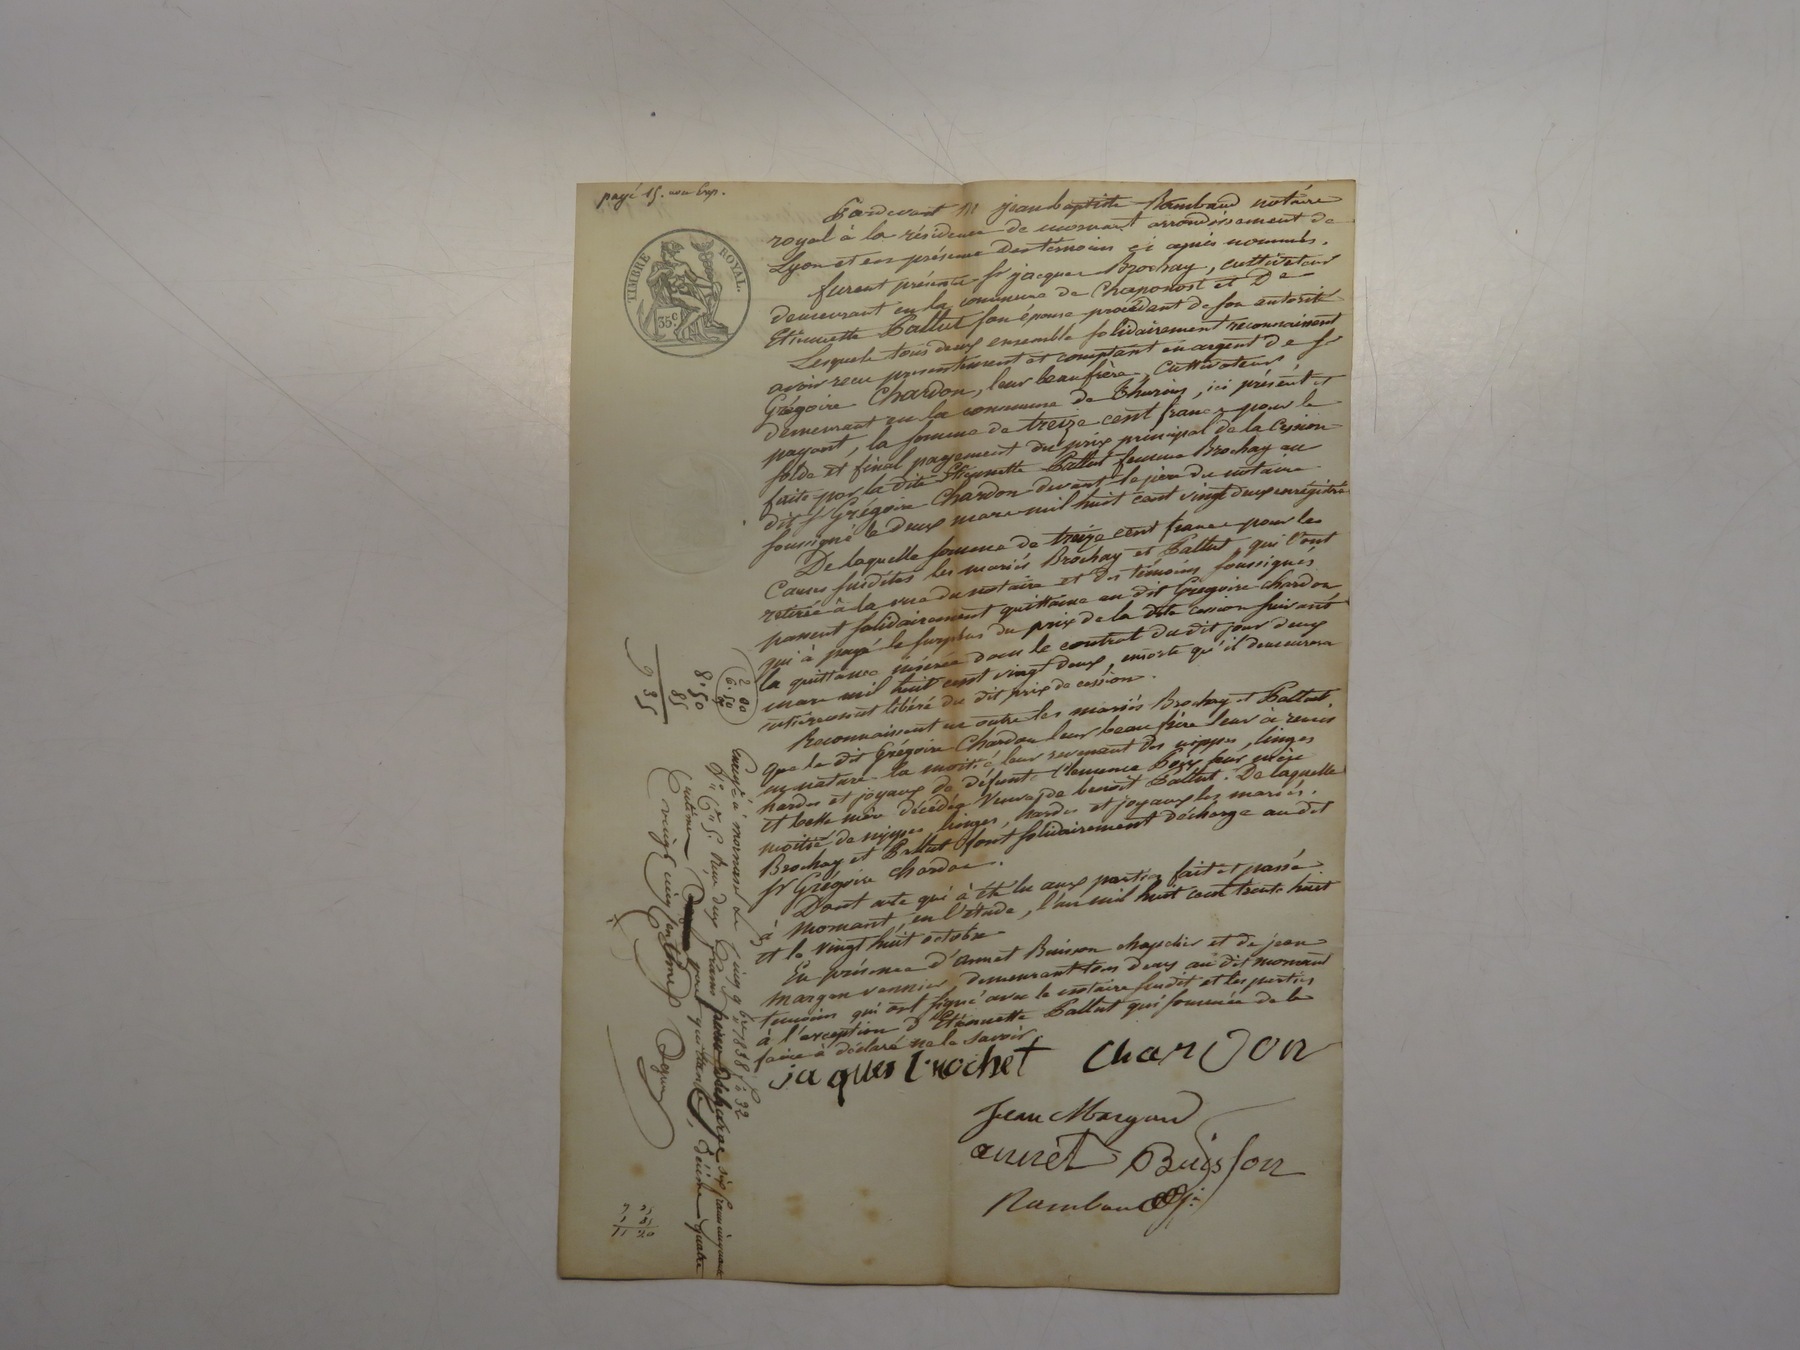 payé 15.
TIMBRE ROYAL.
35 c.
Pardevant Me jean baptiste Rambaud notaire
royal à la résidence de mornant arrondissement de
Lyon et en présence des témoins ci après nommés.
furent présents sr jacques Brochay, cultivateur
demeurant en la commune de Chaponost et De
Etiennette Pallut son épouse procédant de son autorité
Lesquels tous deux ensemble solidairement reconnaissent
avoir reçu présentement et comptant en argent de sr
Grégoire Chardon, leur beaufrère, cultivateur
demeurant en la commune de Thurins, ici présent et
payant, la somme de treize cent francs pour le
solde et final payement du prix principal de la Cession
faite par la dite Etiennette Pallut femme Brochay au
dit sr Grégoire Chardon devant le père du notaire
soussigné le deux mars mil huit cent vingt deux enregistré
De laquelle somme de treize cent francs pour les
Causes susdites les mariés Brochay et Pallut, qui l'ont
retirée à la vue du notaire et des témoins soussignés
passent solidairement quittance au dit Grégoire Chardon
qui à payé le surplus du prix de la dite cession suivant
la quittance insérée dans le contrat du dit jour deux
mars mil huit cent vingt deux, ensorte qu'il demeurera
entièrement libéré du dit prix de cession.
Reconnaissent en outre les mariés Brochay et Pallut
que le dit Grégoire Chardon leur beau frère leur à remis
en nature la moitié à leur revenant des nippes, linges
hardes et joyaux de défunte Clemence leur mère
et belle mère décédée Veuve de benoit Pallut. De laquelle
moitié de nippes, linges, hardes et joyaux les mariés.
Brochay et Pallut font solidairement décharge au dit
sr Grégoire chardon.
Dont acte qui à été lu aux parties fait et passé
à Mornant, en l'étude, l'an mil huit cent trente huit
et le vingt huit octobre
En présence d'annet Buisson chapelier et de jean
margan vannier, demeurant tous deux au dit mornant
temoins qui ont signé avec le notaire susdit et les parties
à l'exception d'Etiennette Pallut qui sommée de le
faire à déclaré ne le savoir
jaques brochet Chardon
Jean Margand
annet Buisson
Rambaud
2 00
6.50
8.50
85
9 35
Enregé à mornant le cinq 9bre 1838 fo 32
Ro Vo Reçu deux francs pour Décharge six francs cinquante
centimes pour quittance, dixième quatre
vingt cinq centimes
11 20